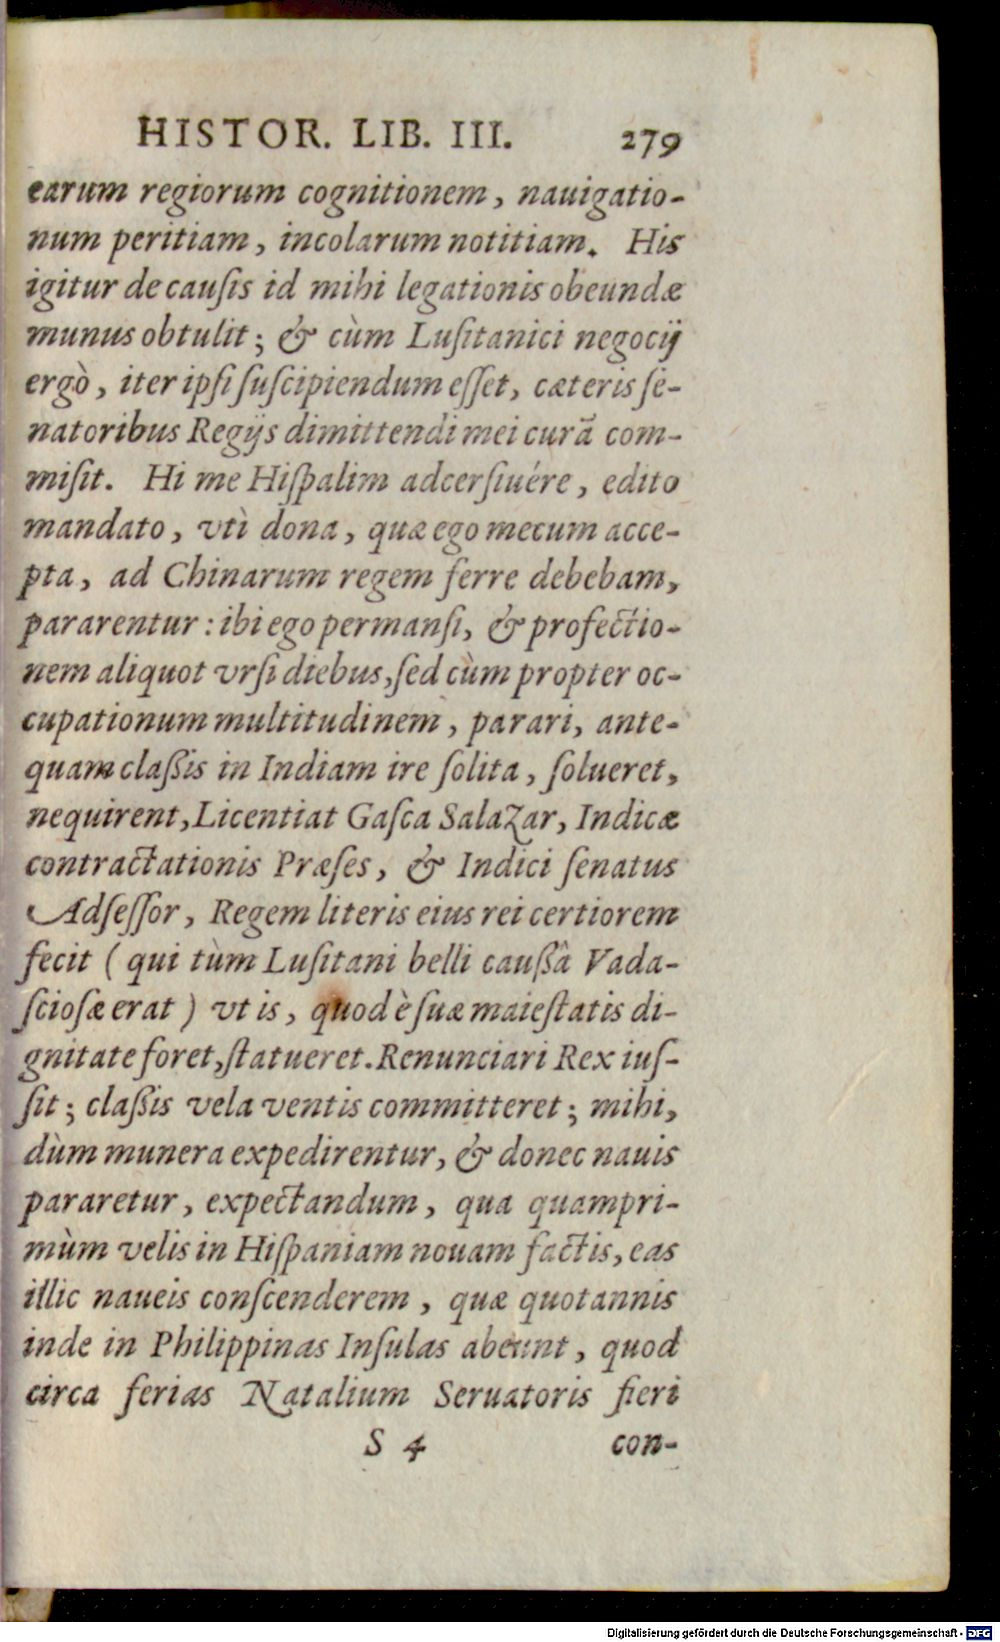 HISTOR. LIB. III. 279
earum regiorum cognitionem, nauigatio-
num peritiam, incolarum notitiam. His
igitur de cauſis id mihi legationis obeundæ
munus obtulit; & cùm Luſitanici negocij
ergò, iter ipſi ſuſcipiendum eſſet, cæteris ſe-
natoribus Regijs dimittendi mei curā com-
miſit. Hi me Hiſpalim adcerſiuére, edito
mandato, vtì dona, quæ ego mecum acce-
pta, ad Chinarum regem ferre debebam,
pararentur: ibi ego permanſi, & profectio-
nem aliquot vrſi diebus, ſed cùm propter oc-
cupationum multitudinem, parari, ante-
quam claßis in Indiam ire ſolita, ſolueret,
nequirent, Licentiat Gaſca Salazar, Indicæ
contractationis Præſes, & Indici ſenatus
Adſeſſor, Regem literis eius rei certiorem
fecit ( qui tùm Luſitani belli caußâ Vada-
ſcioſæ erat ) vt is, quod è ſuæ maieſtatis di-
gnitate foret, ſtatueret. Renunciari Rex iuſ-
ſit; claßis vela ventis committeret; mihi,
dùm munera expedirentur, & donec nauis
pararetur, expectandum, qua quampri-
mùm velis in Hiſpaniam nouam factis, eas
illic naueis conſcenderem, quæ quotannis
inde in Philippinas Inſulas abeunt, quod
circa ferias Natalium Seruatoris fieri
S 4 con-
Digitalisierung gefördert durch die Deutsche Forschungsgemeinschaft - DFG